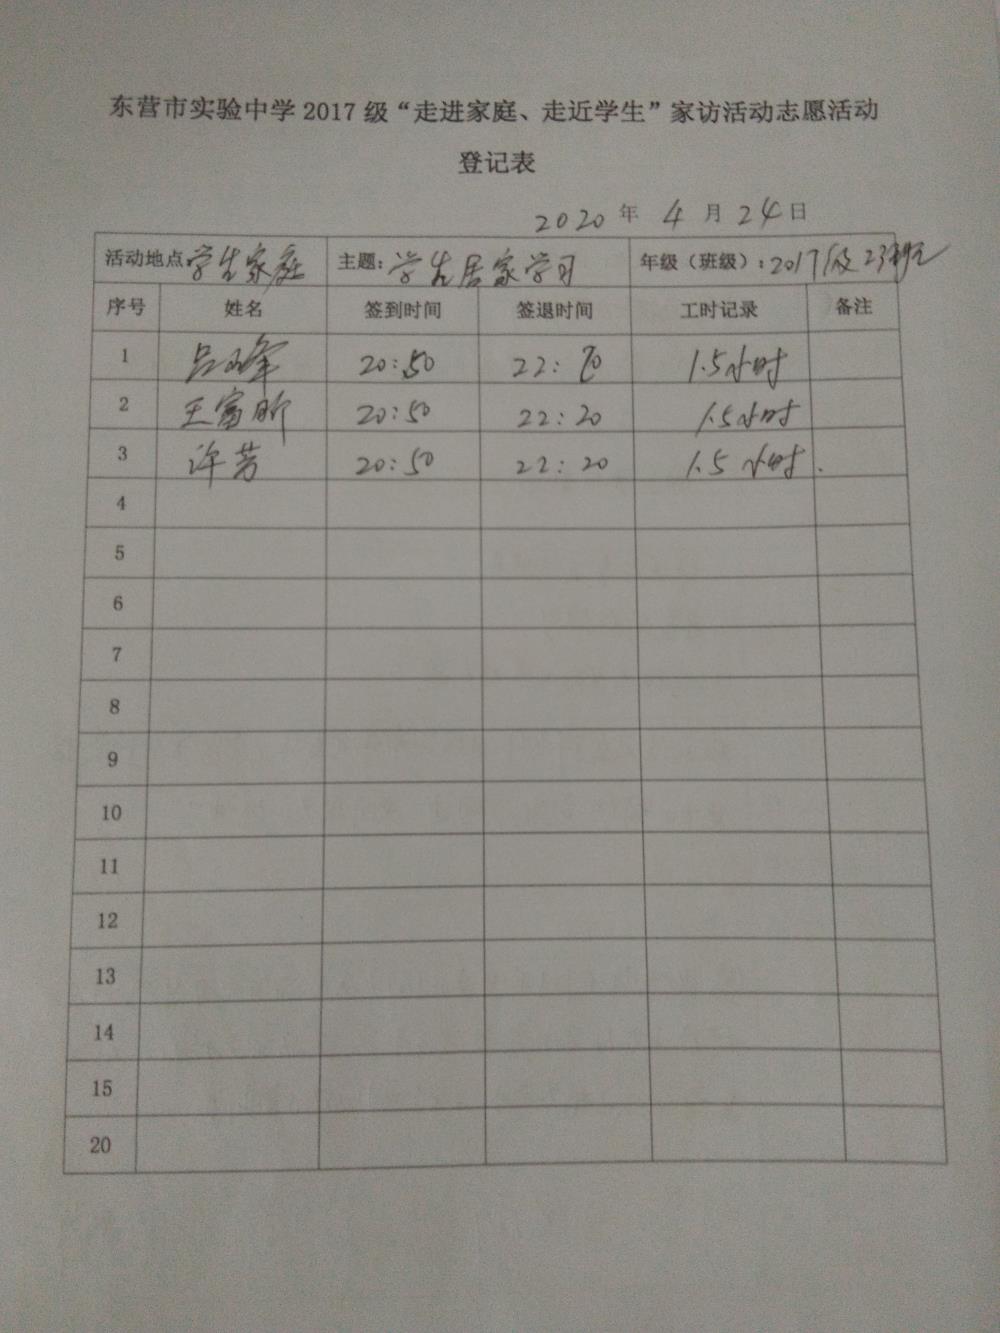 东营市实验中学 2017 级“走进家庭、走近学生”家访活动志愿活动
登记表
2020 年 4 月 24 日
活动地点 学生家庭 主题：学生居家学习 年级（班级）：2017级
序号 姓名 签到时间 签退时间 工时记录 备注
1 20:50 22: 1.5小时
2 王富昕 20:50 22:20 1.5小时
3 许芳 20:50 22:20 1.5小时.
4
5
6
7
8
9
10
11
12
13
14
15
20